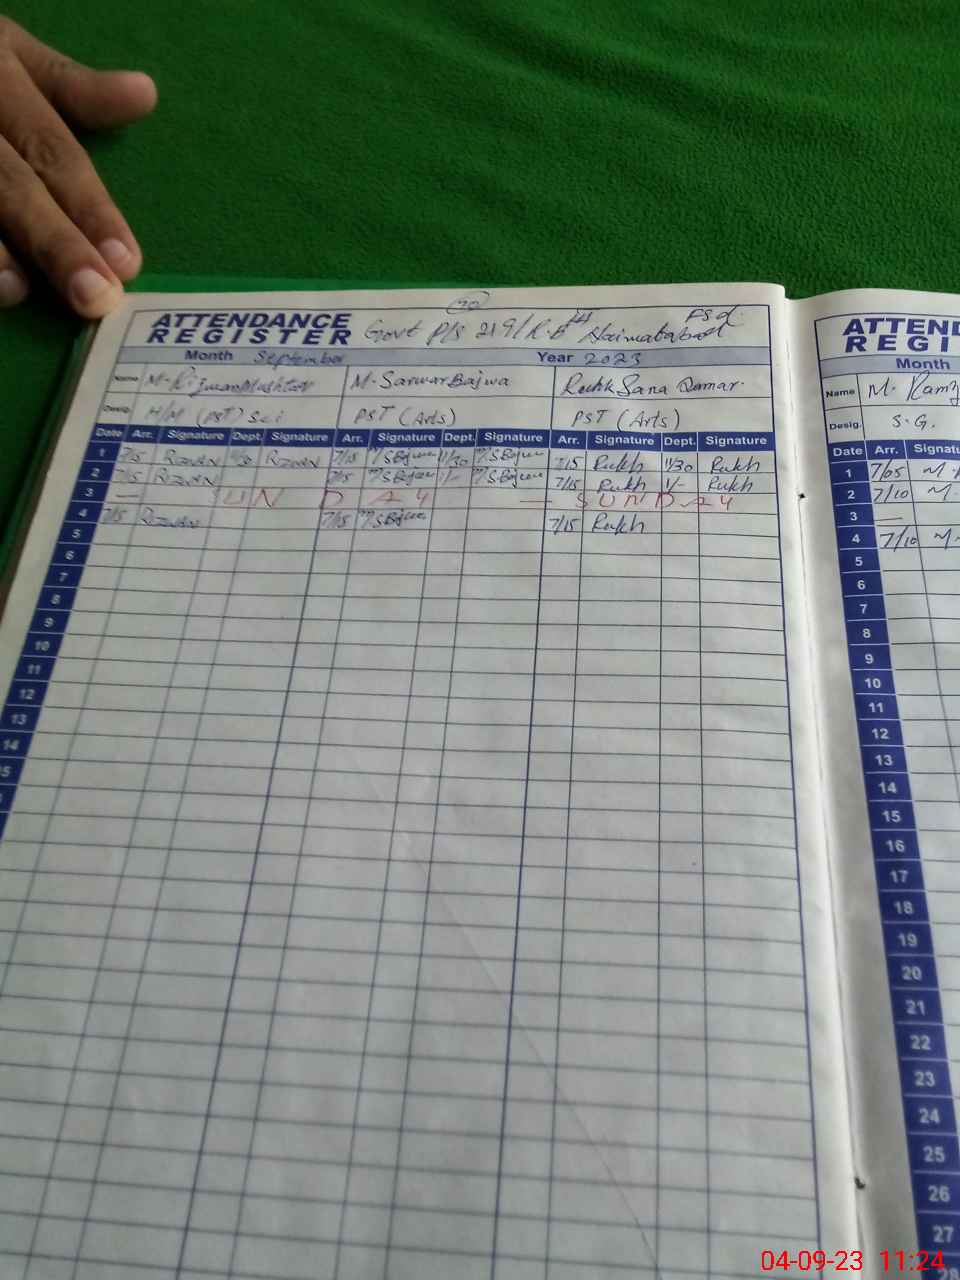 20
ATTENDANCE REGISTER Govt P/S 219/R.B Naimatabad Fsd.
Month September Year 2023
Name M. Rizwan Mushtaq M. Sarwar Bajwa Rukh Sana Qamar.
Desig. H/M (PST) Sci PST (Arts) PST (Arts)
Date Arr. Signature Dept. Signature Arr. Signature Dept. Signature Arr. Signature Dept. Signature
1 7/15 RIZWAN 11/30 RIZWAN 7/15 M S Bajwa 11/30 M S Bajwa 7/15 Rukh 11/30 Rukh
2 7/15 RIZWAN 7/15 M S Bajwa 1/- M S Bajwa 7/15 Rukh 1/- Rukh
3 — SUNDAY — SUNDAY
4 7/15 RIZWAN 7/15 M S Bajwa 7/15 Rukh
5
6
7
8
9
10
11
12
13
14
ATTEND
REGI
Month
Name M. Ramz
Desig. S.G.
Date Arr. Signatu
1 7/05 M.
2 7/10 M.
3 —
4 7/10 M.
5
6
7
8
9
10
11
12
13
14
15
16
17
18
19
20
21
22
23
24
25
26
27
28
04-09-23 11:24